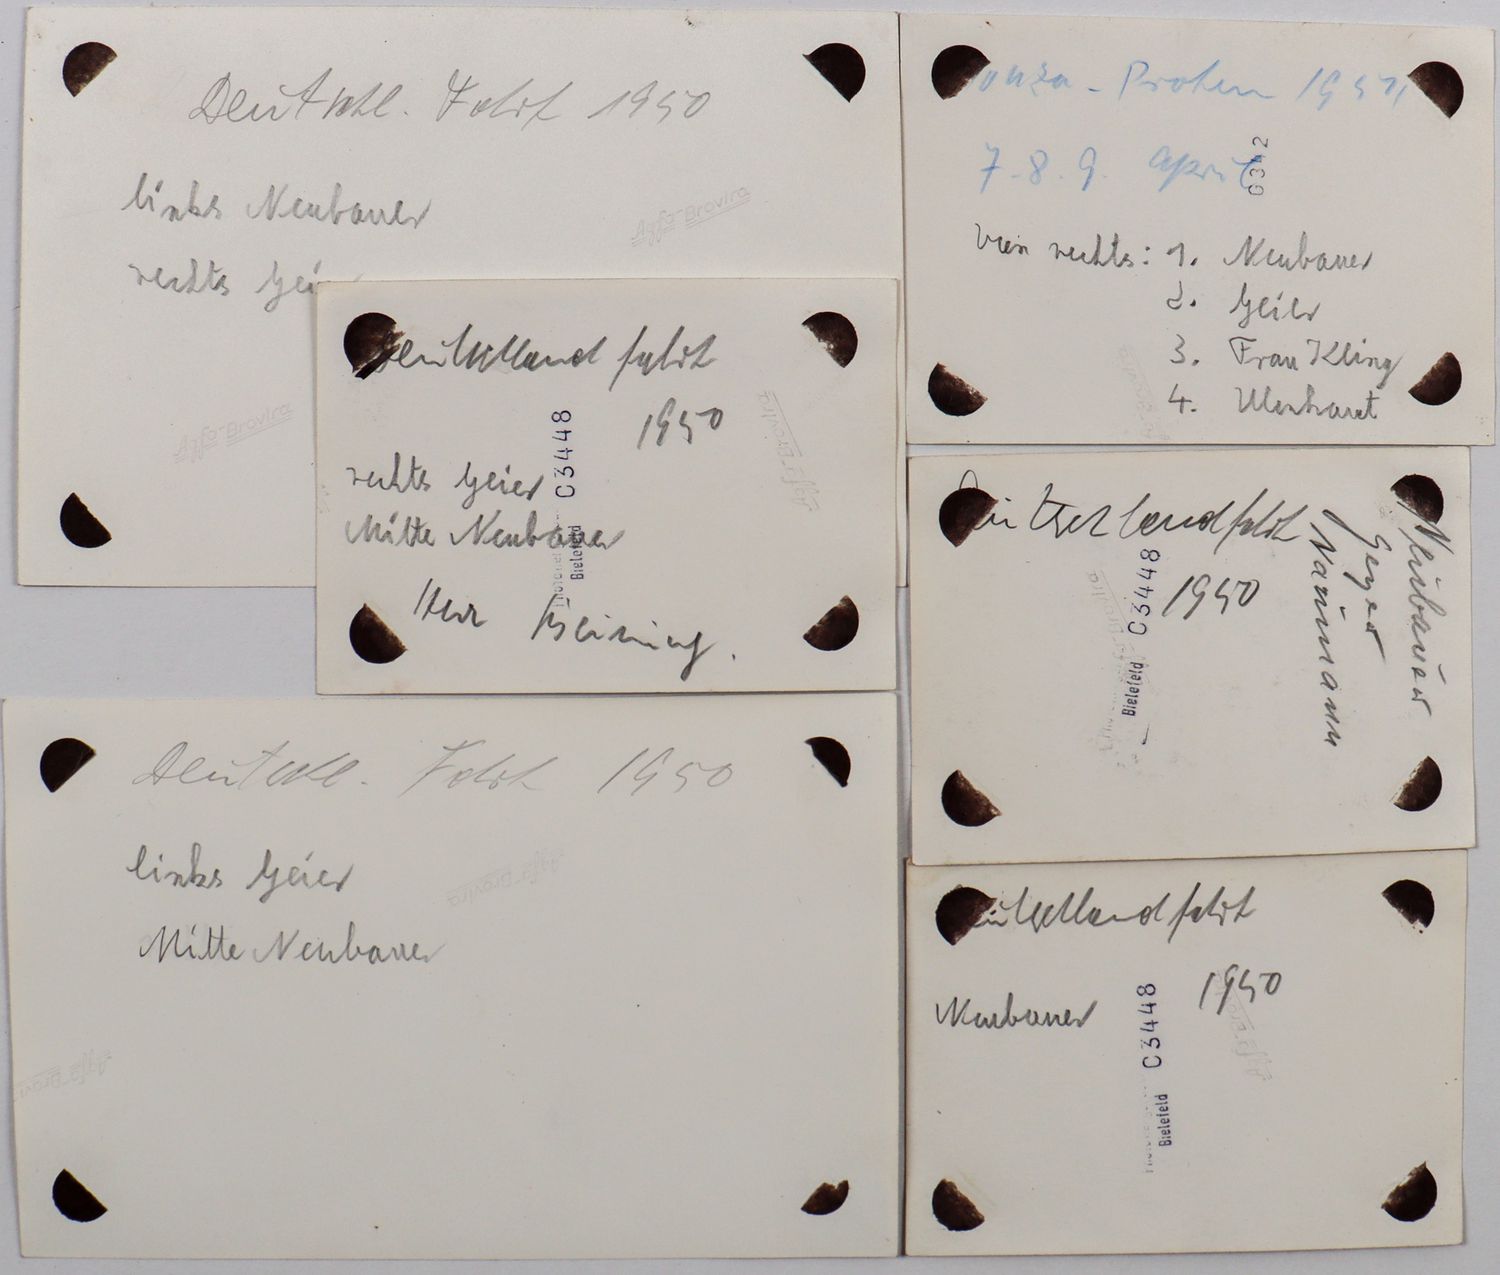 Deutschl. Fahrt 1950
links Neubauer
rechts Gei
Agfa-Brovira
Agfa-Brovira
Deutschlandfahrt
1950
rechts Geier
Mitte Neubauer
Herr
C3448
Bielefeld
Agfa-Brovira
Deutschl. Fahrt 1950
links Geier
Mitte Neubauer
Agfa-Brovira
Agfa-Brovira
1951
7. 8. 9. April
0342
von rechts: 1. Neubauer
2. Geier
3. Frau Kling
4.
utschlandfahrt
1950
Neubauer
Geyer
Naumann
C3448
Bielefeld
utschlandfahrt
1950
Neubauer
C3448
Bielefeld
Agfa-Brovira